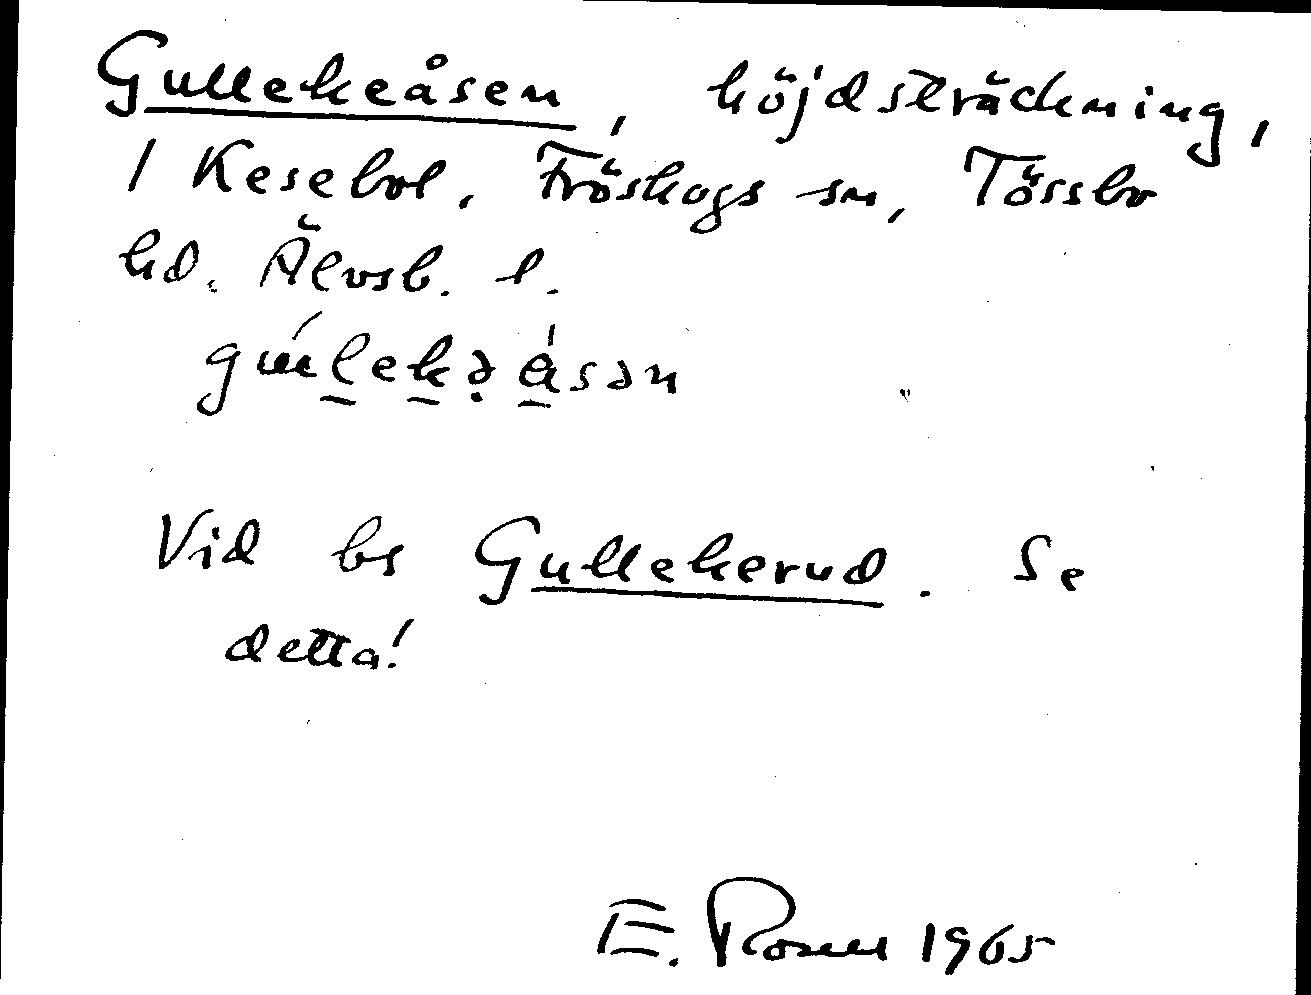 Gullekeåsen, höjdsträckning,
1 Kesebol, Fröskogs sn, Tössbo
hd. Älvsb. l.
gúlekə̣àsən
Vid bs Gullekerud. Se
detta!
E. Rosell 1965